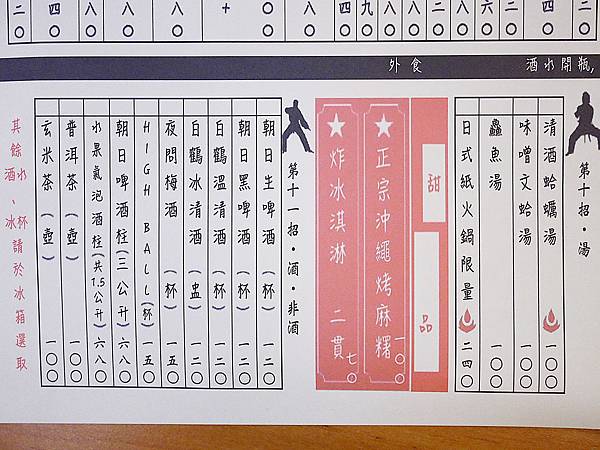 二〇
四〇
八〇
八〇
八〇
十
〇〇
八〇
四〇
九〇
八〇
二〇
八〇
六〇
二〇
四〇
二〇
酒水開瓶,
外食
第十招・湯
清酒蛤蠣湯 一〇〇
味噌文蛤湯 一〇〇
鱻魚湯 一〇〇
日式紙火鍋限量 二四〇
甜品
★正宗沖繩烤麻糬 一〇〇
★炸冰淇淋 二貫 七〇
第十一招・酒・非酒
朝日生啤酒(杯) 一二〇
朝日黑啤酒(杯) 一二〇
白鶴溫清酒(杯) 一二〇
白鶴冰清酒(盅) 一二〇
夜問梅酒(杯) 一五〇
HIGH BALL(杯) 一五〇
朝日啤酒柱(三公升) 六八〇
水果氣泡酒柱(共1.5公升) 六八〇
普洱茶(壺) 一〇〇
玄米茶(壺) 一〇〇
其餘酒水、冰杯請於冰箱選取